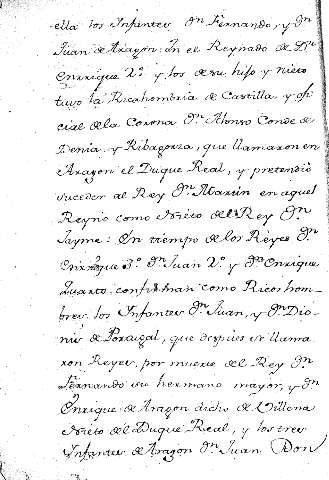 ella los Infantes Dn Fernando, y Dn
Juan de Aragon: En el Reynado de Dn
Enrrique 2º y los de su hijo y nieto
tuvo la Ricahombria de Castilla, y ofi
cial de la Corona Dn Alonso Conde de
Denia, y Ribagorza, que llamaron en
Aragon el Duque Real, y pretendió
suceder al Rey Dn Martin en aquel
Reyno como Nieto del Rey Dn
Jayme: En tiempo de los Reyes Dn
Enrrique 3º Dn Juan 2º y Dn Enrique
Quarto confirman como Ricos hom-
bres los Infantes Dn Juan, y Dn Dio-
nis de Portugal, que despues se llama
ron Reyes, por muerte del Rey Dn
Fernando su hermano mayor, y Dn
Enrique de Aragon dicho de Villena
Nieto del Duque Real, y los tres
Infantes de Aragon Dn Juan Don